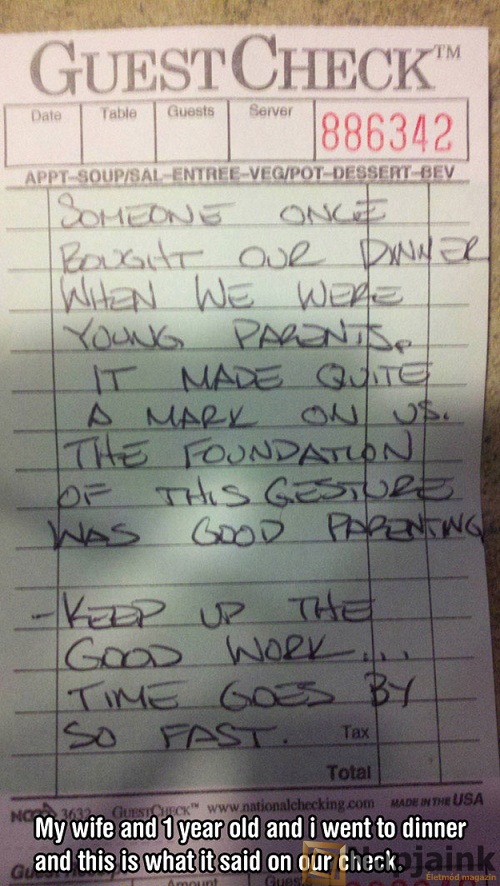 GUESTCHECK™
Date Table Guests Server 886342
APPT-SOUP/SAL-ENTREE-VEG/POT-DESSERT-BEV
SOMEONE ONCE
BOUGHT OUR DINNER
WHEN WE WERE
YOUNG PARENTS.
IT MADE QUITE
A MARK ON US.
THE FOUNDATION
OF THIS GESTURE
WAS GOOD PARENTING
-KEEP UP THE
GOOD WORK...
TIME GOES BY
SO FAST. Tax
Total
3632 GUESTCHECK™ www.nationalchecking.com MADE IN THE USA
My wife and 1 year old and i went to dinner
and this is what it said on our check.
Napjaink
Életmód magazin
Amount